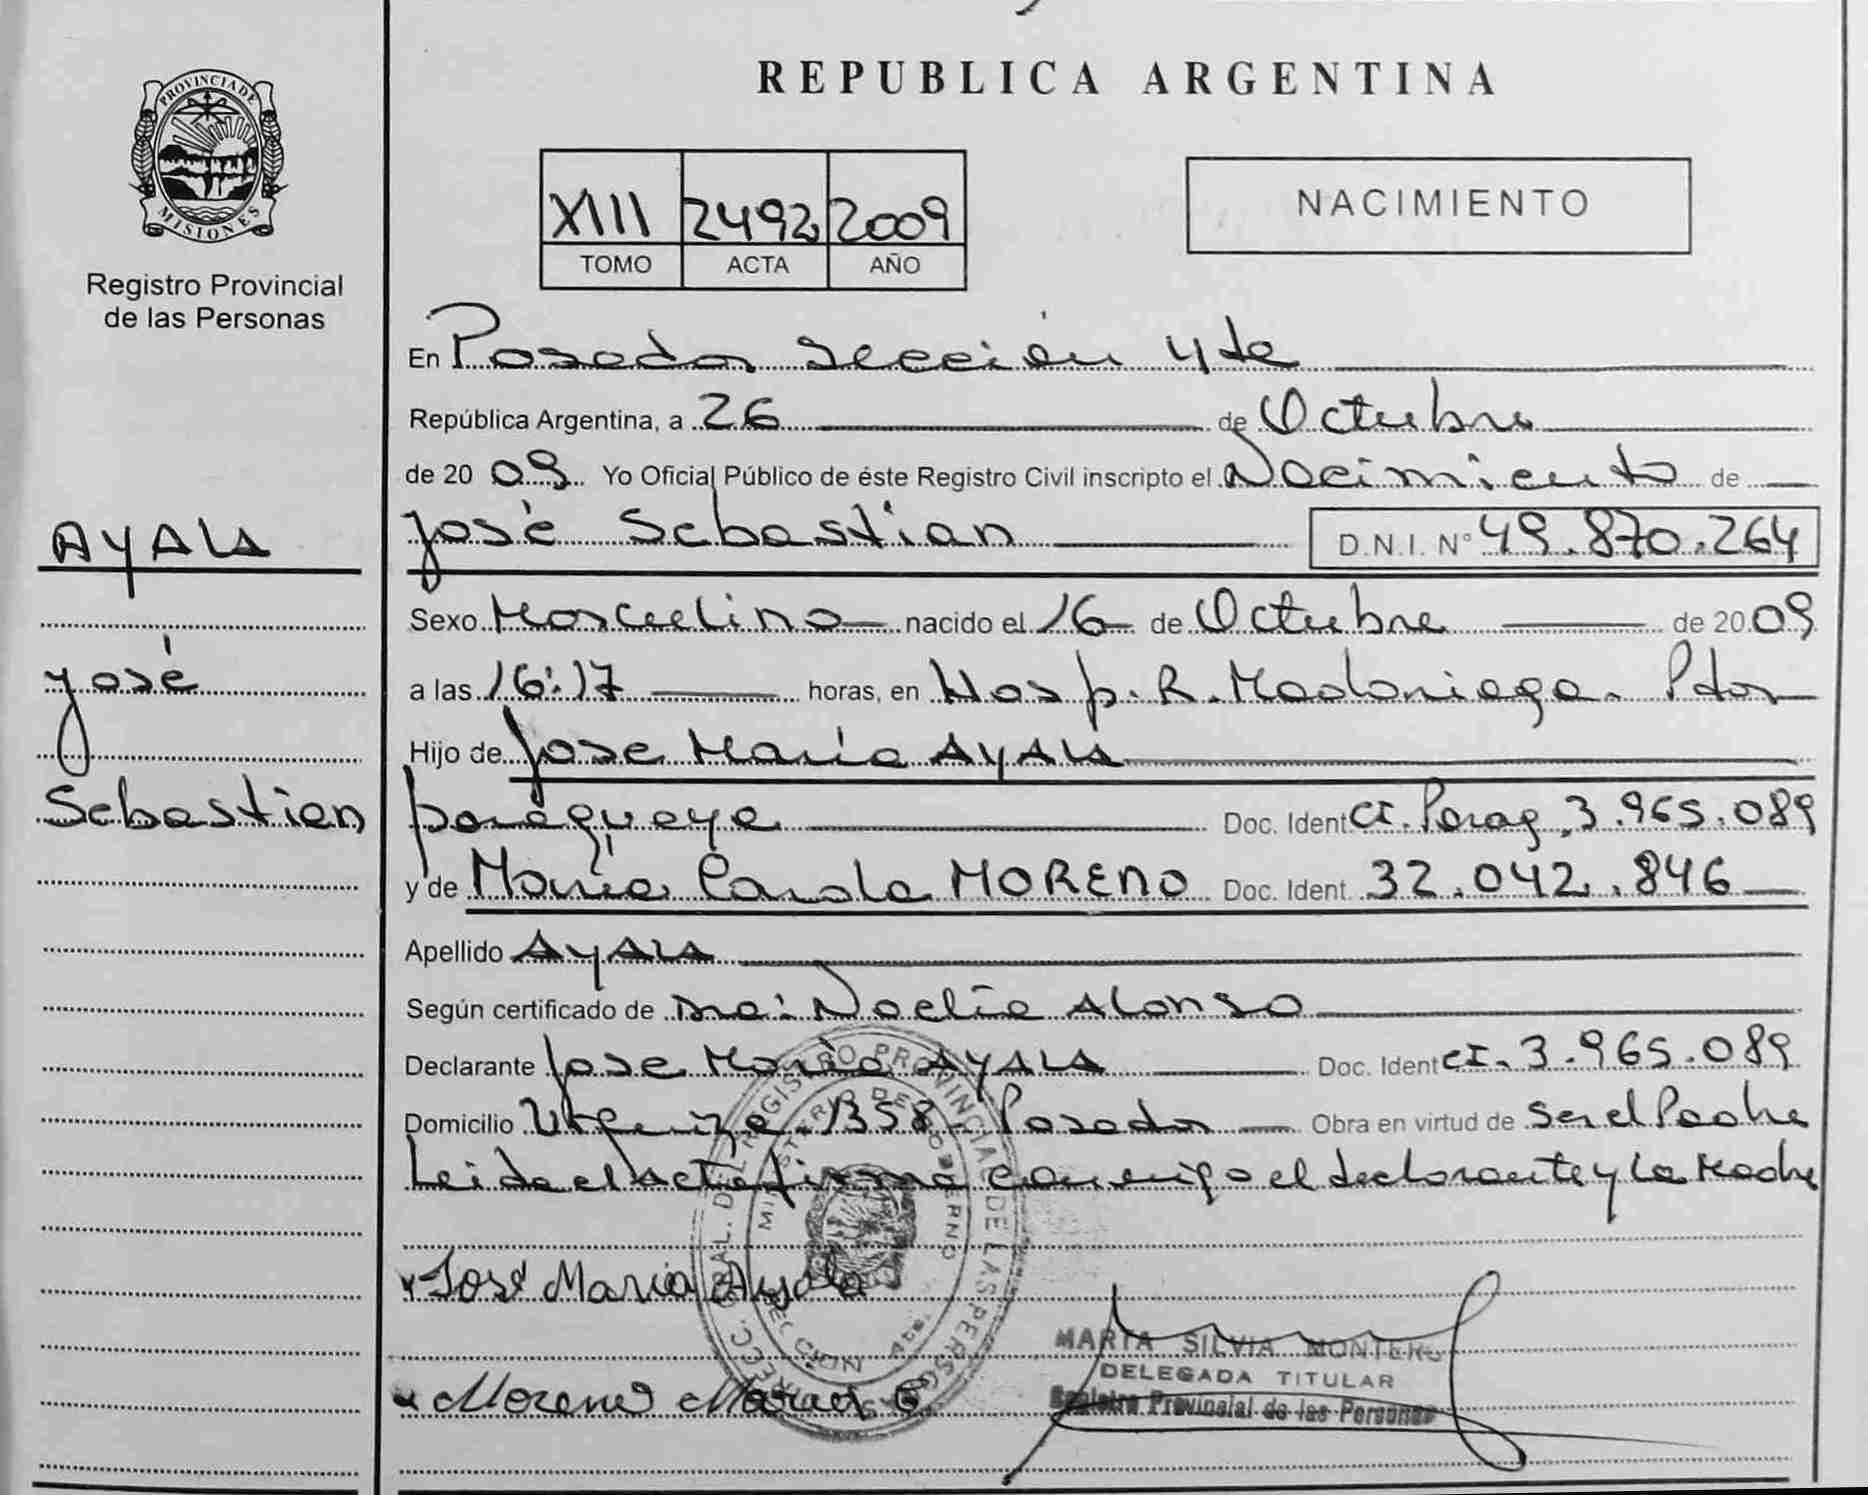 PROVINCIA DE
MISIONES
Registro Provincial
de las Personas
AYALA
José
Sebastian
REPUBLICA ARGENTINA
XIII 2492 2009
TOMO ACTA AÑO
NACIMIENTO
En Posadas Sección 4ta
República Argentina, a 26 de Octubre
de 20 09 Yo Oficial Público de éste Registro Civil inscripto el Nacimiento de
José Sebastian D.N.I. N° 49.870.264
Sexo Masculino nacido el 16 de Octubre de 20 09
a las 16:17 horas, en Hosp. R. Madariaga. Pdas
Hijo de Jose María AYALA
paraguaya Doc. Ident CI. Parag. 3.965.089
y de María Carola MORENO Doc. Ident. 32.042.846
Apellido AYALA
Según certificado de Dra: Noelia Alonso
Declarante Jose María AYALA Doc. Ident CI. 3.965.089
Domicilio 1358 Posadas Obra en virtud de ser el Padre
Leida el acta firma conmigo el declarante y la Madre
José María Ayala
Moreno María C
REGISTRO PROVINCIAL DE LAS PERSONAS
MINISTERIO DE GOBIERNO
MARTA SILVIA MONTERO
DELEGADA TITULAR
Registro Provincial de las Personas